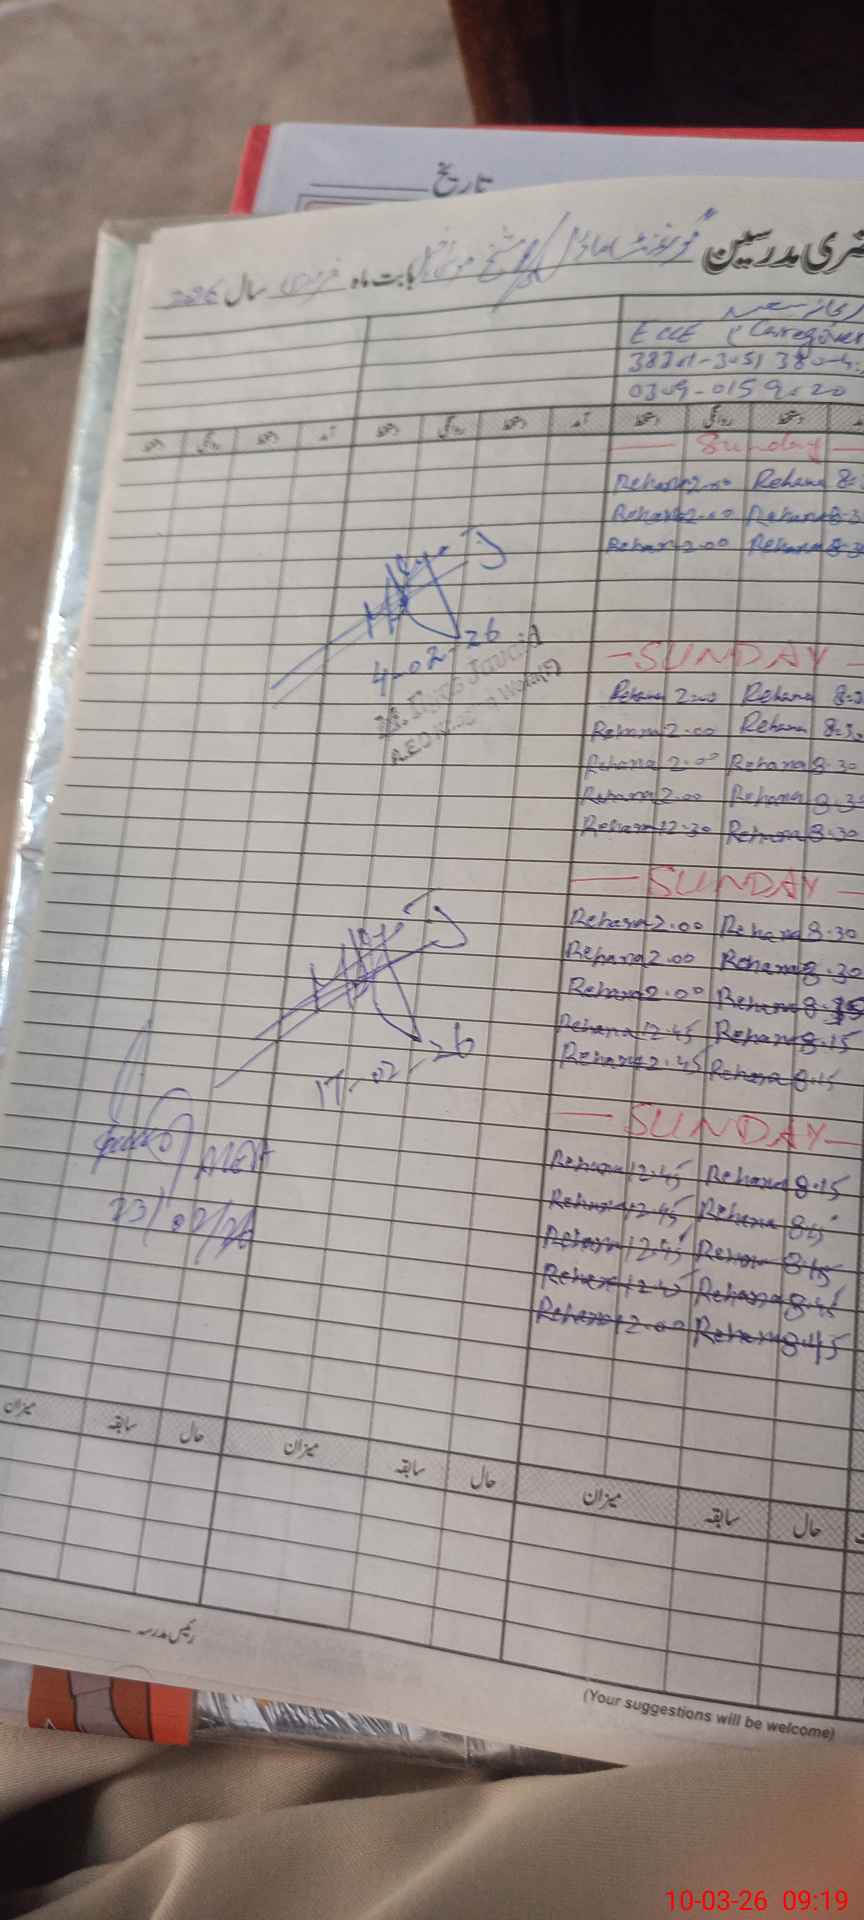 تاریخ
حاضری مدرسین گورنمنٹ ماڈل بابت ماہ فروری سال 2026
ECCE Caregiver
آمد دستخط روانگی دستخط آمد دستخط روانگی دستخط
Sunday
Rehana 2.00 Rehana 8:3
Rehana 2.00 Rehana 8.3
Rehana 2.00 Rehana 8.30
4-02-26
-SUNDAY-
Rehana 2.00 Rehana 8:3
Rehana 2.00 Rehana 8:30
Rehana 2.00 Rehana 8.30
Rehana 2.00 Rehana 8.30
Rehana 12.30 Rehana 8.30
— SUNDAY —
Rehana 2.00 Rehana 8.30
Rehana 2.00 Rehana 8.30
Rehana 2.00 Rehana 8.15
Rehana 12.45 Rehana 8.15
Rehana 12.45 Rehana 8.15
17-02-26
— SUNDAY —
Rehana 12.45 Rehana 8.15
Rehana 12.45 Rehana 8.15
Rehana 12.45 Rehana 8.15
Rehana 12.45 Rehana 8.45
Rehana 12.00 Rehana 8.45
23/02/26
حال سابقہ میزان حال سابقہ میزان حال سابقہ میزان
رئیس مدرسہ
(Your suggestions will be welcome)
10-03-26 09:19